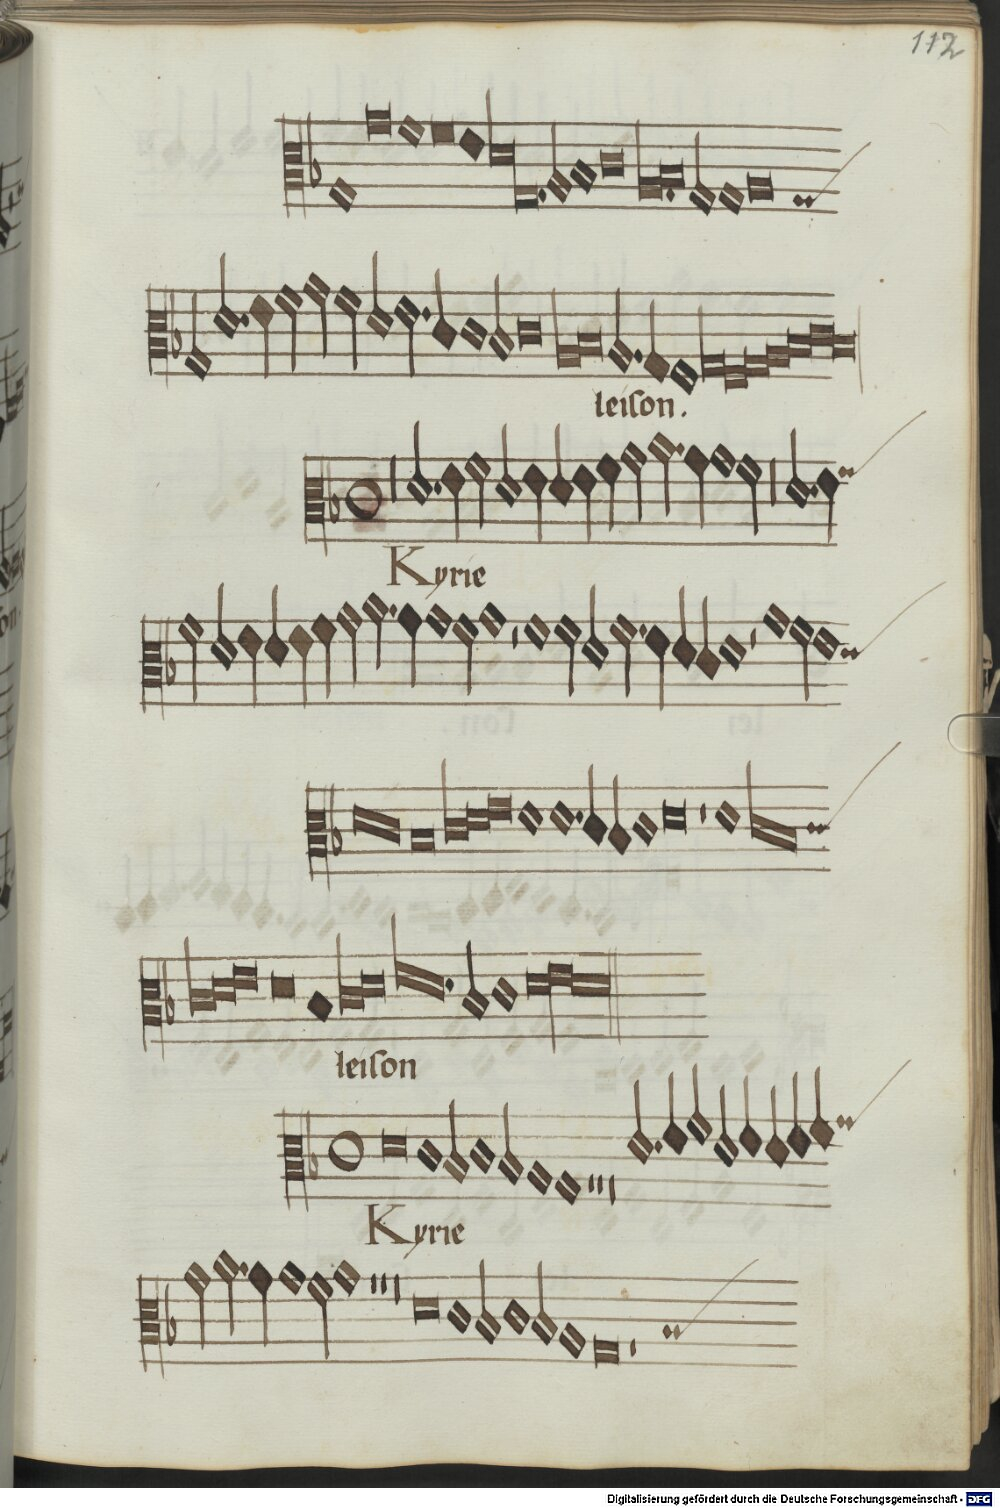 112
leison.
Kyrie
leison
Kyrie
Digitalisierung gefördert durch die Deutsche Forschungsgemeinschaft - DFG